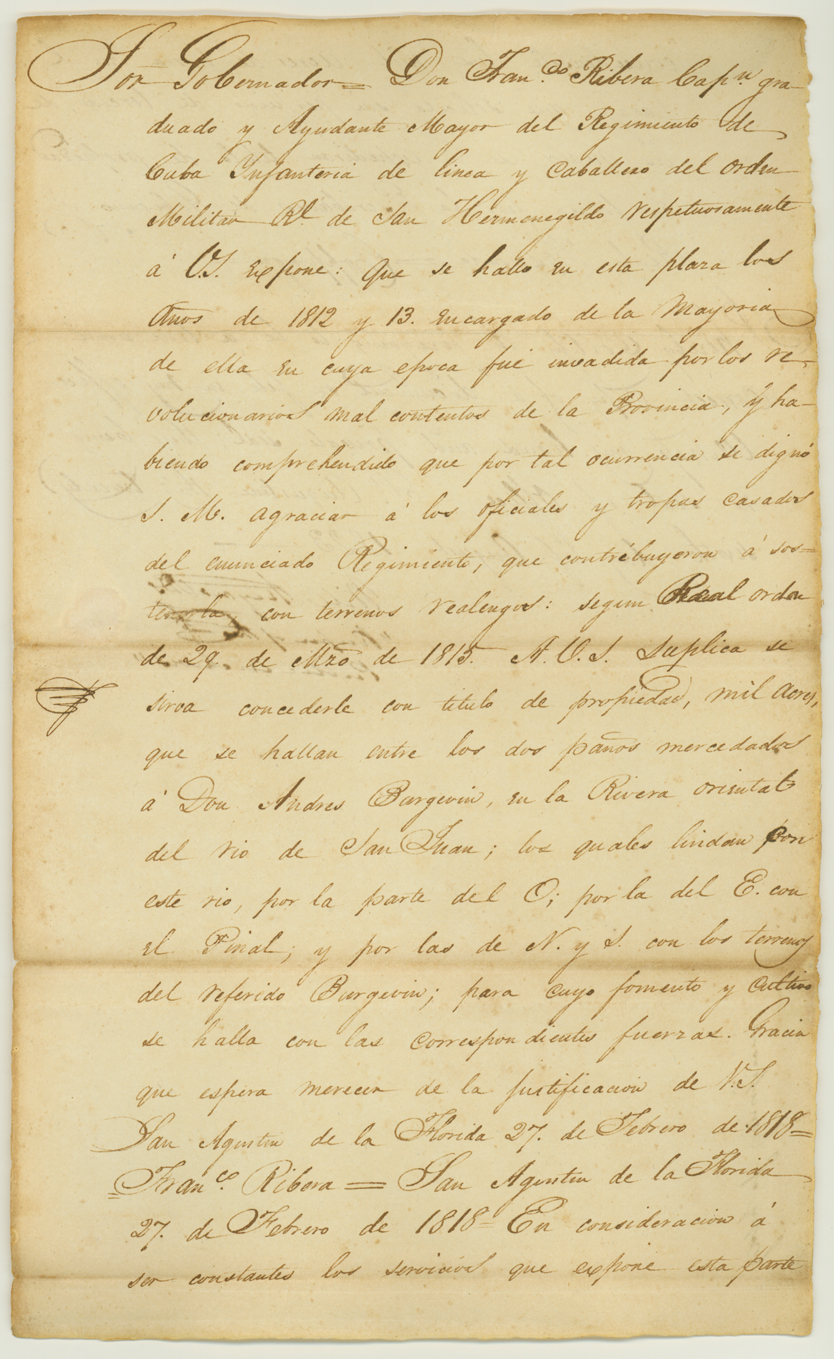 Sor Gobernador = Don Fran.do Ribera Cap.n gra-
duado y Ayudante Mayor del Regimiento de
Cuba Infanteria de linea y Caballero del orden
Militar Rl. de San Hermenegildo respetuosamente
á V.S. expone: Que se hallo en esta plaza los
Años de 1812 y 13. encargado de la Mayoria
de ella en cuya epoca fué invadida por los re-
volucionarios mal contentos de la Provincia, y ha-
biendo comprehendido que por tal ocurrencia se dignó
S. M. agraciar á los oficiales y tropas casados
del enunciado Regimiento, que contribuyeron á sos-
tenerla con terrenos realengos: segun Real orden
de 29 de Mzo de 1815. A. V. S. Suplica se
sirva concederle con titulo de propiedad, mil acres,
que se hallan entre los dos paños mercedados
á Don Andres Burgevin, en la Rivera oriental
del rio de San Juan; los quales lindan con
este rio, por la parte del O; por la del E. con
el Pinal; y por las de N. y S. con los terrenos
del referido Burgevin; para cuyo fomento y cultivo
se halla con las correspondientes fuerzas. Gracia
que espera merecer de la justificacion de V.S.
San Agustin de la Florida 27. de Febrero de 1818=
=Fran.co Ribera = San Agustin de la Florida
27. de Febrero de 1818= En consideracion á
ser constantes los servicios que expone esta parte